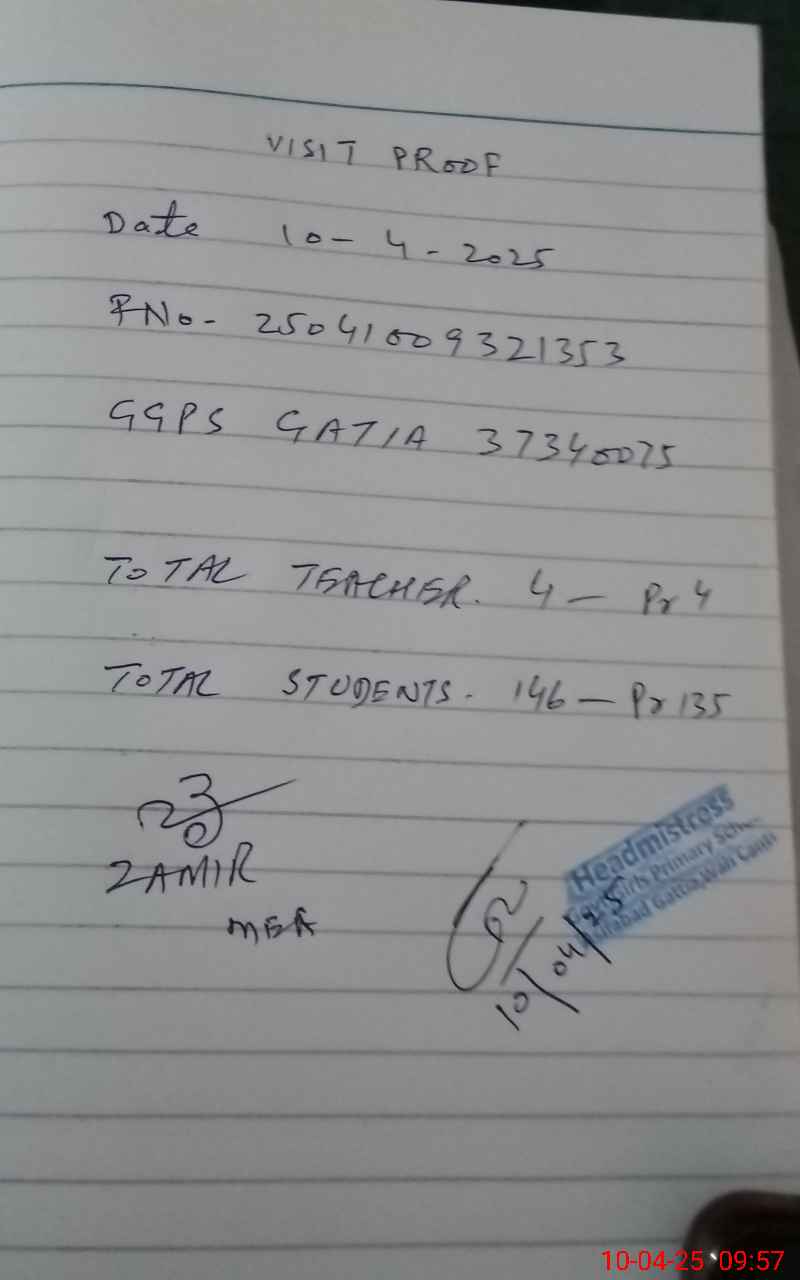 VISIT PROOF
Date 10-4-2025
FNo- 25041009321353
GGPS GATIA 37340075
TOTAL TEACHER. 4 - Pr 4
TOTAL STUDENTS. 146 - Pr 135
ZAMIR
MEA
Headmistress
Girls Primary
Wah Cantt
10/04/25
10-04-25 09:57